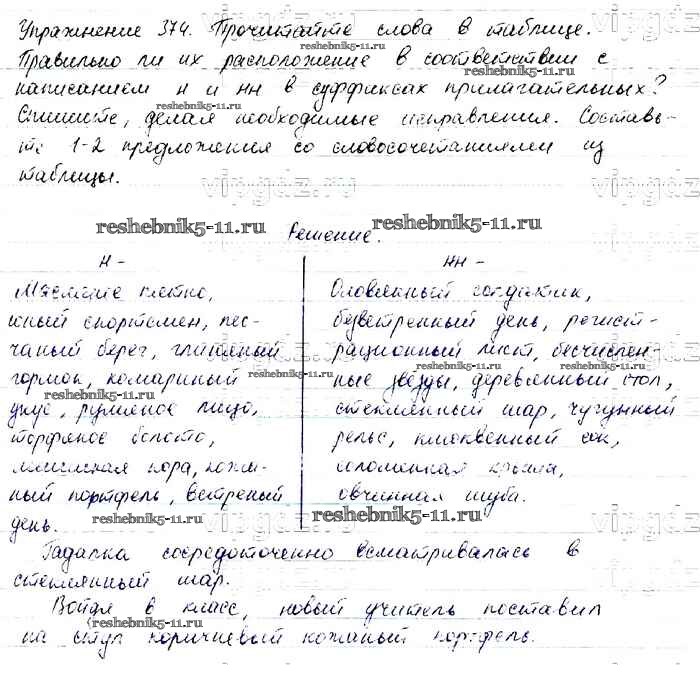 Упражнение 374. Прочитайте слова в таблице.
reshebnik5-11.ru
Правильно ли их расположение в соответствии с
reshebnik5-11.ru
написанием н и нн в суффиксах прилагательных?
reshebnik5-11.ru
Спишите, делая необходимые исправления. Составь-
те 1-2 предложения со словосочетаниями из
таблицы.
vipgdz.ru
reshebnik5-11.ru reshebnik5-11.ru
Решение.
Н -
Масляное пятно,
юный спортсмен, пес-
чаный берег, глиняный
reshebnik5-11.ru
горшок, комариный
укус, румяное лицо,
торфяное болото,
земляная кора, кожа-
ный портфель, ветреный
день.
reshebnik5-11.ru
НН -
Оловянный солдатик,
безветренный день, регист-
рационный лист, бесчислен-
reshebnik5-11.ru
ные звёзды, деревянный стол,
стеклянный шар, чугунный
рельс, клюквенный сок,
соломенная крыша,
овчинная шуба.
reshebnik5-11.ru
Гадалка сосредоточенно всматривалась в
стеклянный шар.
Войдя в класс, новый учитель поставил
reshebnik5-11.ru
на стул коричневый кожаный портфель.